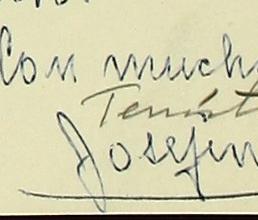 Con much
Tenist
Josefin